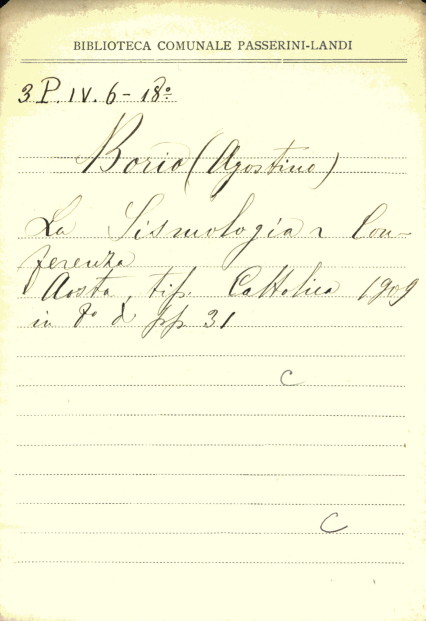 BIBLIOTECA COMUNALE PASSERINI-LANDI
3 P. IV. 6 - 18º
Borio (Agostino)
La Sismologia Con-
ferenza
Aosta, tip. Cattolica 1909
in 8º d pp 31
C
C